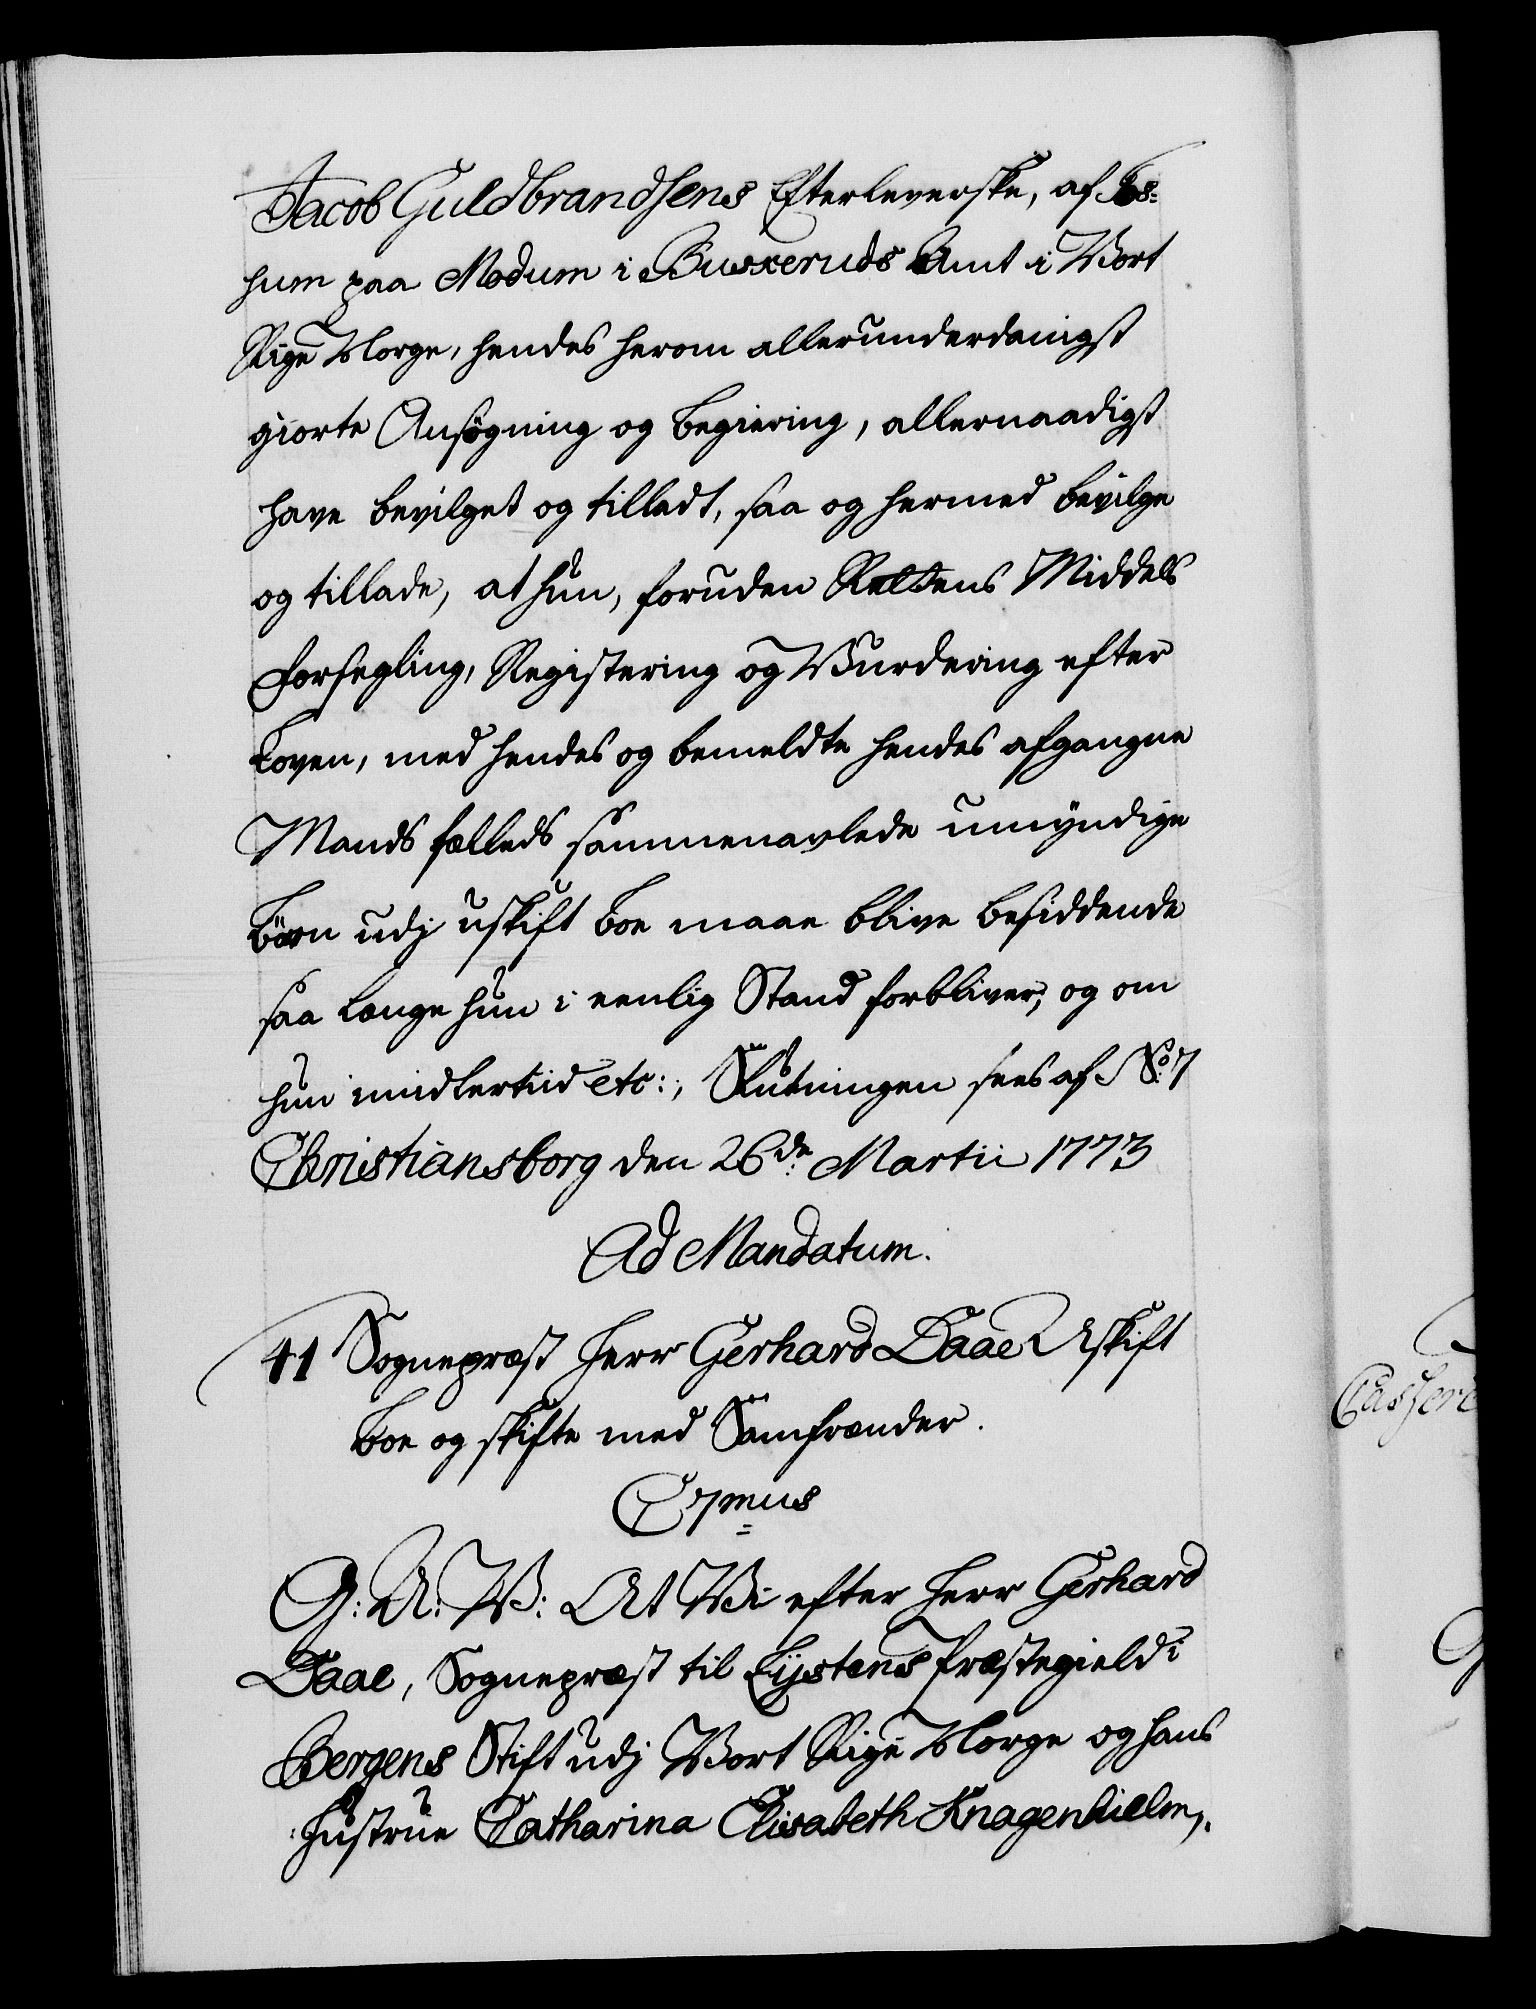 Jacob Guldbrandsens Efterleverske, af
hum paa Modum i Buskeruds Amt i Vort
Rige Norge, hendes herom allerunderdanigst
giorte Ansøgning og begiering, allernaadigst
have bevilget og tilladt, saa og hermed bevilge
og tillade, at hun, foruden Rettens Middels
Forsegling, Registering og Vurdering efter
Loven, med hendes og bemeldte hendes afgangne
Mands fælleds sammenavlede umyndige
Børn udj uskift Boe maae blive besiddende
saa længe hun i eenlig Stand forbliver, og om
hun imidlertiid etc:, Slutningen sees af No: 7
Christiansborg den 26de Martii 1773
Ad Mandatum.
41 Sognepræst Herr Gerhard Daae Uskift
Boe og skifte med Samfrænder.
C 7mus
G: A: V: At Vi efter Herr Gerhard
Daae, Sognepræst til Lysters Præstegield i
Bergens Stift udj Vort Rige Norge og hans
Hustrue Catharina Elisabeth Knagenhielm,
Casser